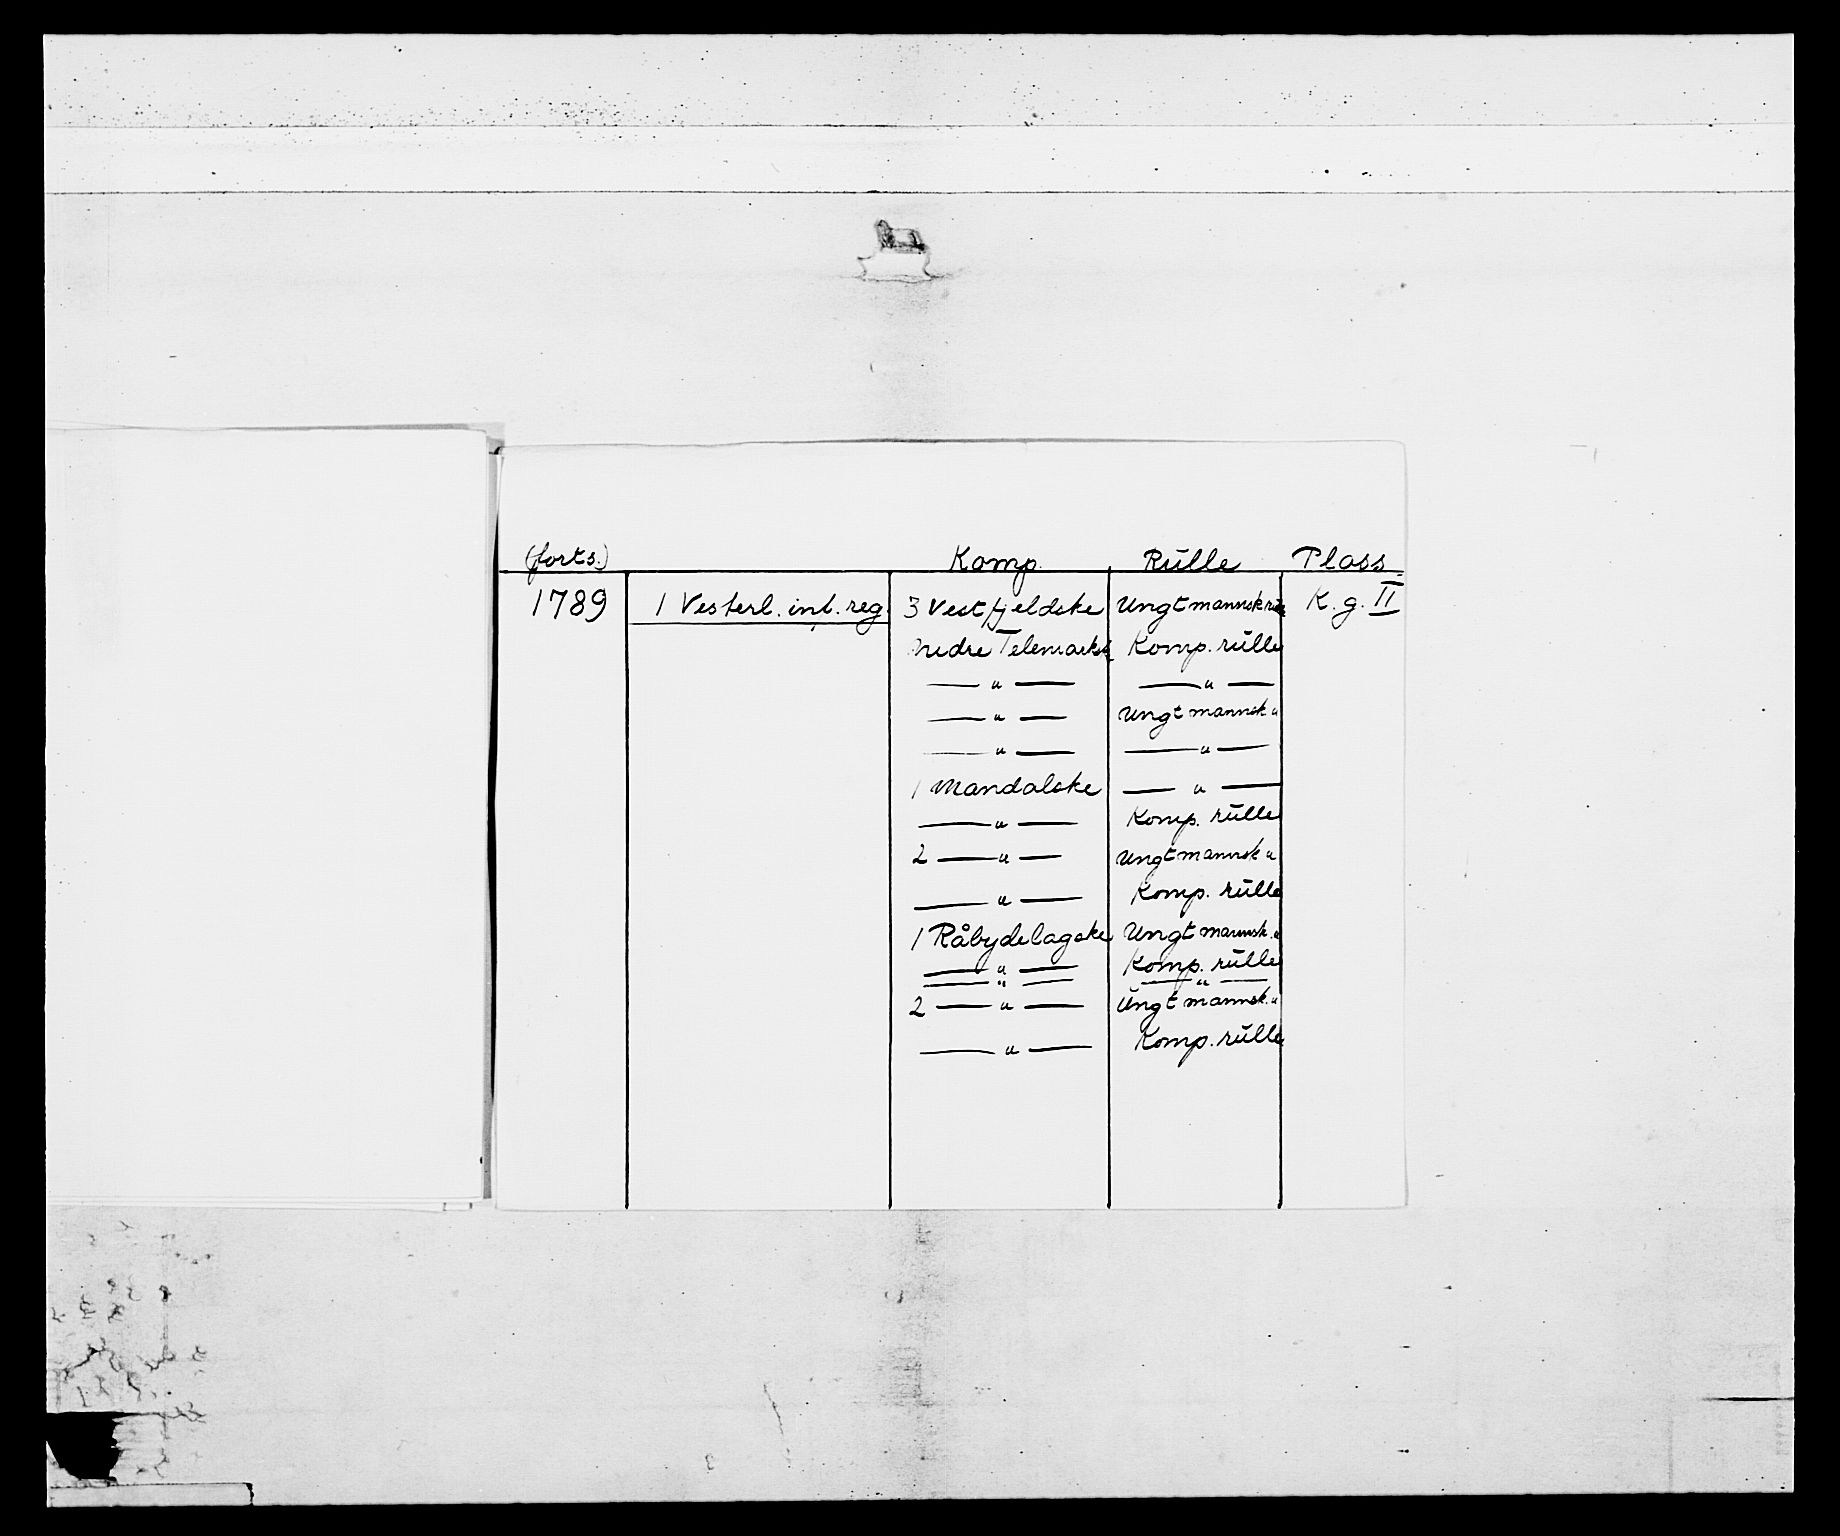 (forts.) Komp. Rulle Plass
1789 1 Vesterl. inf. reg. 3 Vestfjeldske Ungtmannsk rulle K. g. II
Nedre Telemarkske Komp. rulle
— " — — " —
— " — Ungtmannsk "
— " — — " —
1 Mandalske — " —
— " — Komp. rulle
2 — " — Ungtmannsk "
— " — Komp. rulle
1 Råbydelagske Ungtmannsk. "
— " — Komp. rulle
— " — — " —
2 — " — Ungtmannsk. "
— " — Komp. rulle